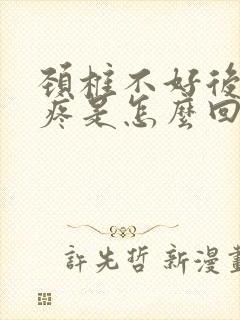 頚椎不好後
疼是怎麼回
許先哲 新漫畫